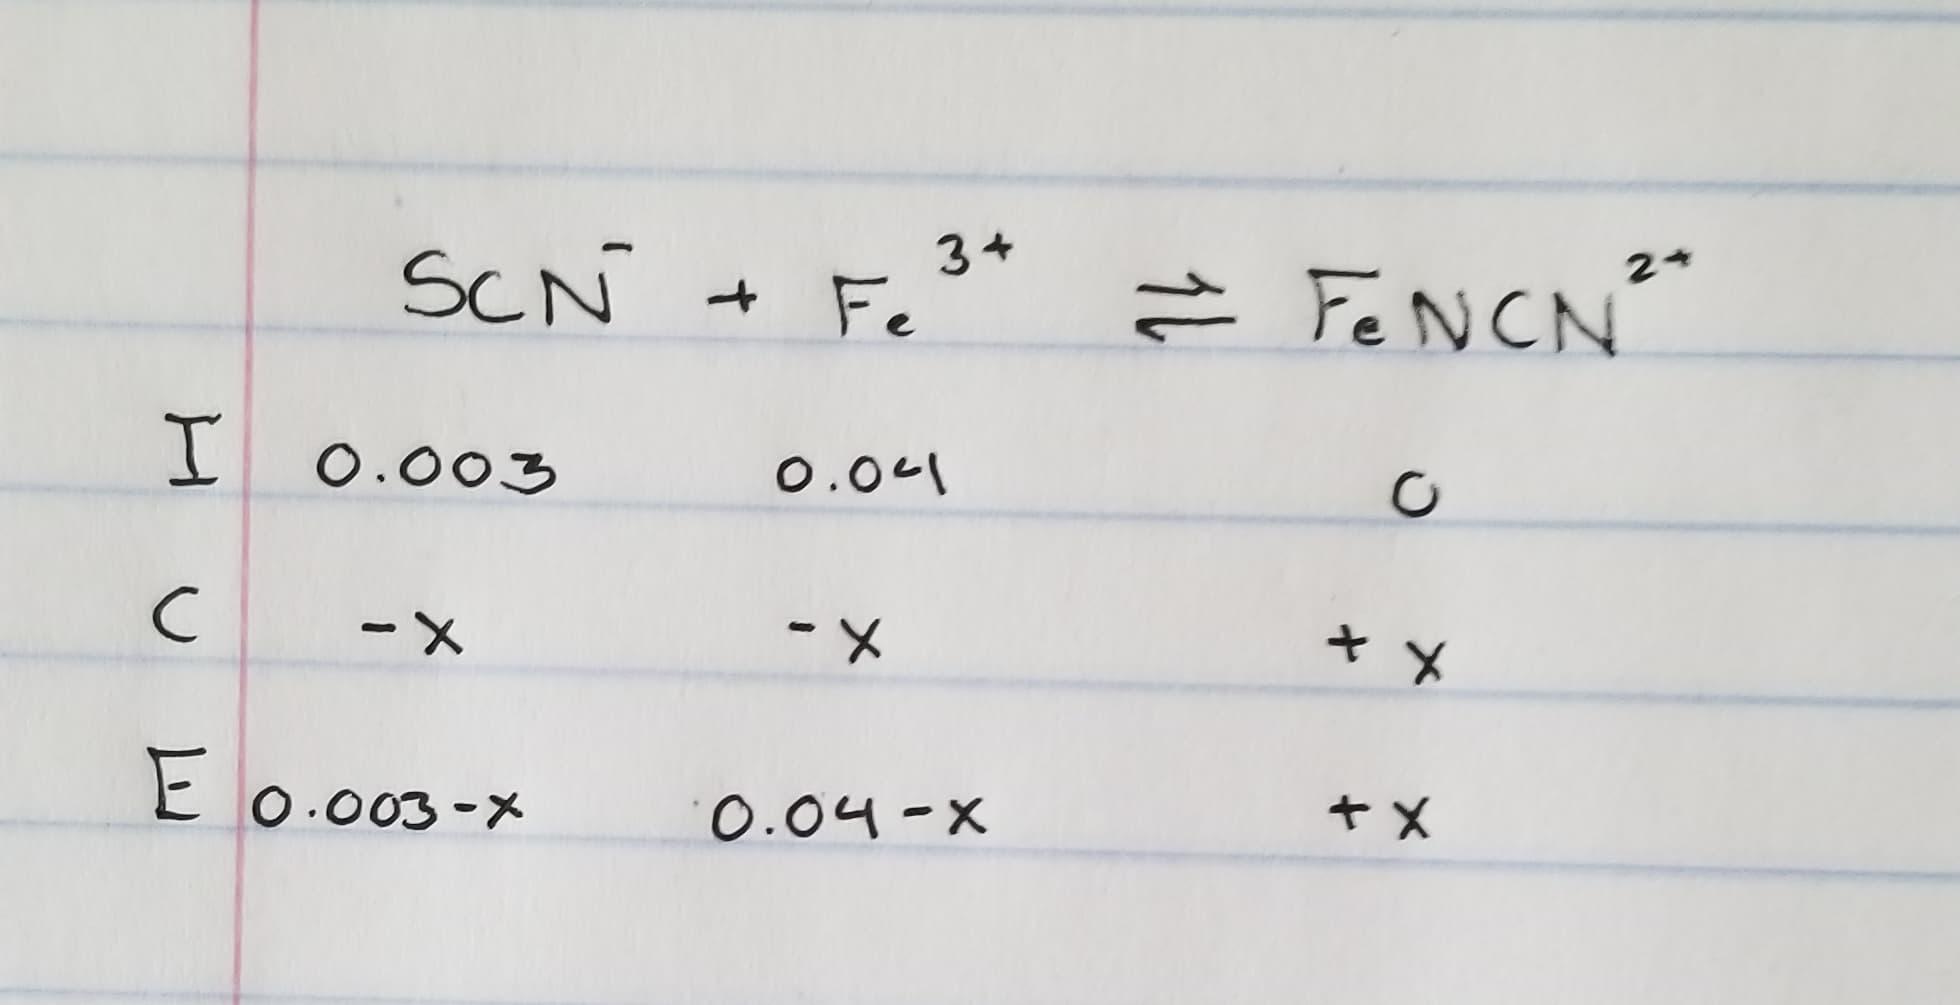 SCN⁻ + Fe³⁺ ⇌ FeNCN²⁺
I 0.003 0.04 0
C -x -x +x
E 0.003-x 0.04-x +x